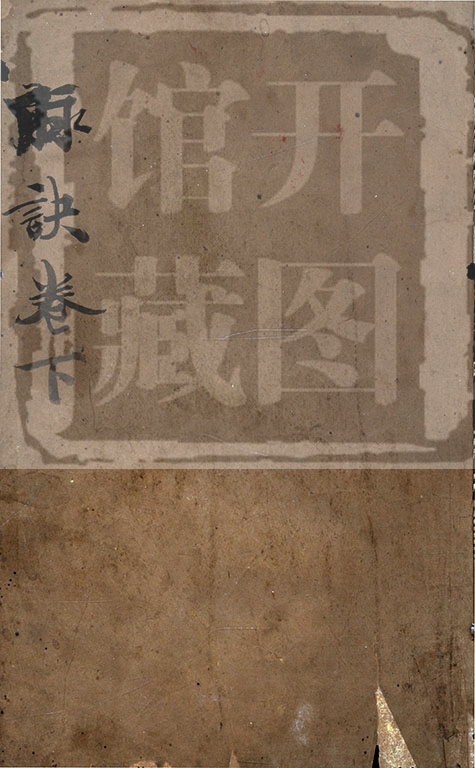 脉訣卷下
开图
馆藏